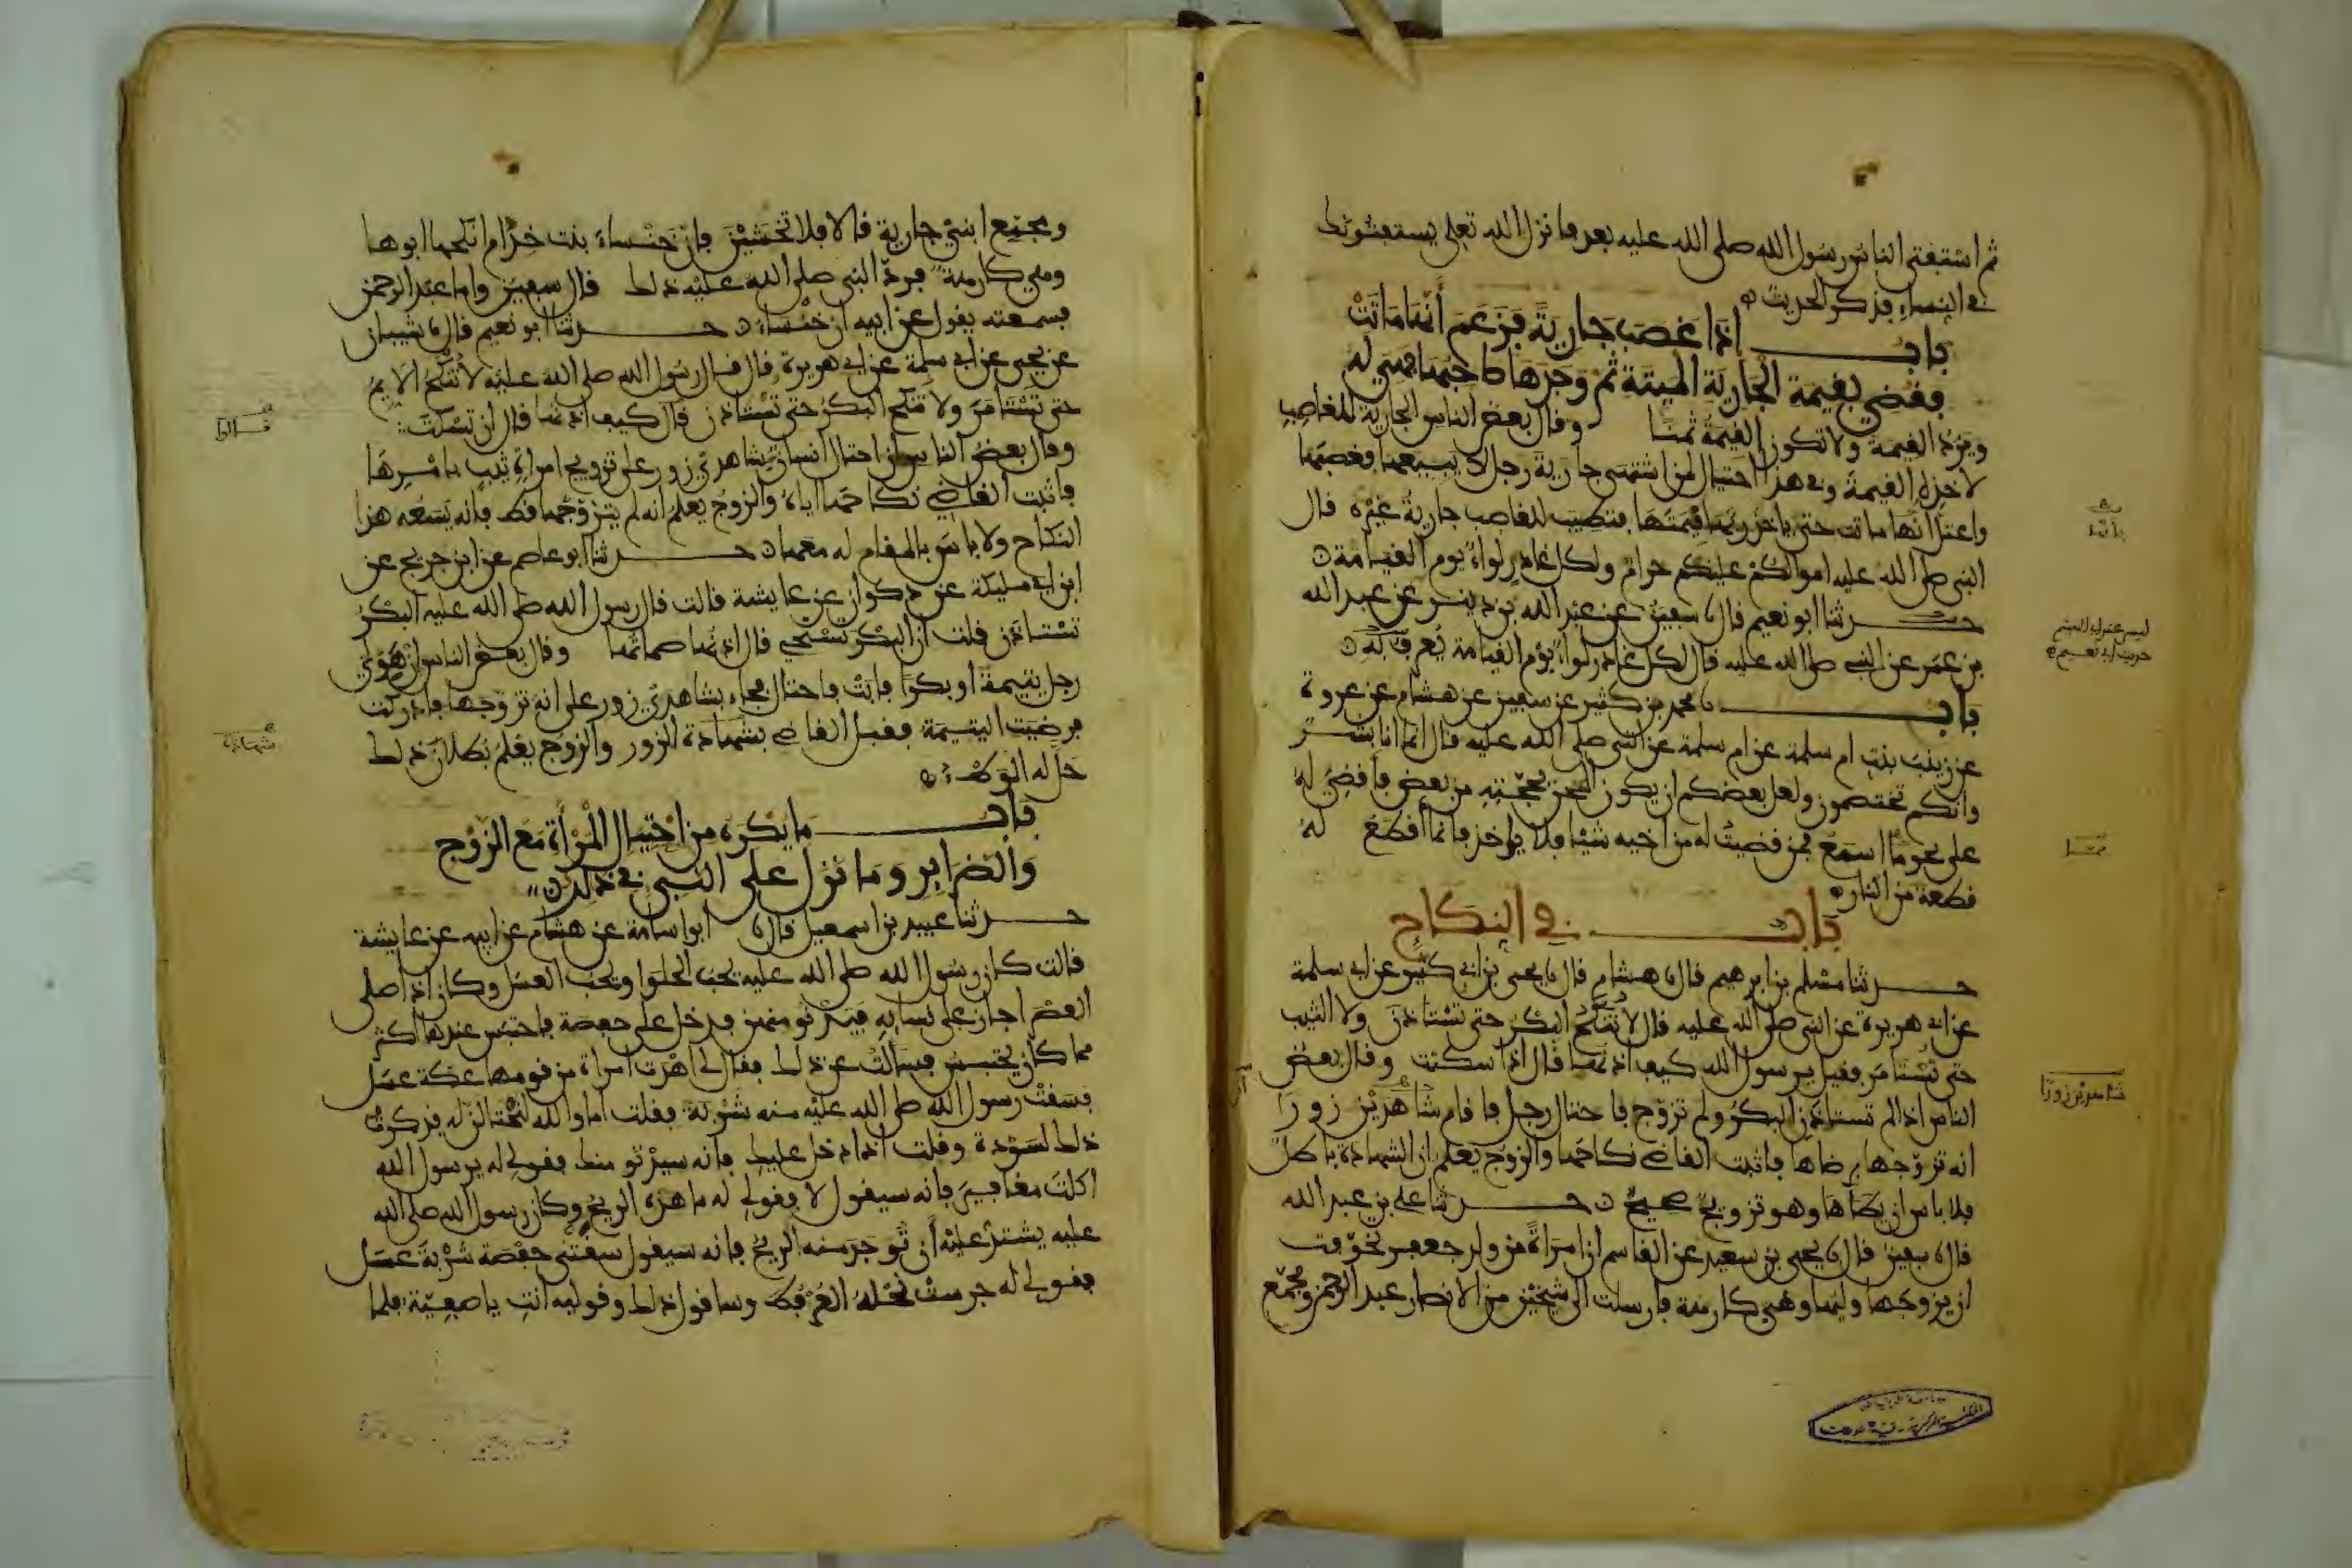 ثم استفتى الناس رسول الله صلى الله عليه بعد فانزل الله تعلى يستفتونك
في النساء فذكر الحديث
باب اذا غصب جارية فزعم أنها ماتت
فقضي بقيمة الجارية الميتة ثم وجدها صاحبها فهي له
ويرد القيمة ولا تكون القيمة ثمنا وقال بعض الناس الجارية للغاصب
لاخذه القيمة وفي هذا احتيال لمن اشتهى جارية رجل لا يبيعها فغصبها
واعتل انها ماتت حتى ياخذ ربها قيمتها فتطيب للغاصب جارية غيره قال
النبي صلى الله عليه اموالكم عليكم حرام ولكل غادر لواء يوم القيامة
حدثنا ابو نعيم قال نا سفين عن عبد الله بن دينر عن عبد الله
بن عمر عن النبي صلى الله عليه قال لكل غادر لواء يوم القيامة يعرف به
باب نا محمد بن كثير عن سفين عن هشام عن عروة
عن زينب بنت ام سلمة عن ام سلمة عن النبي صلى الله عليه قال انما انا بشر
وانكم تختصمون ولعل بعضكم ان يكون الحن بحجته من بعض فاقضي له
على نحو ما اسمع فمن قضيت له من اخيه شيئا فلا ياخذ فانما أقطع له
قطعة من النار
باب في النكاح
حدثنا مسلم بن ابرهيم قال نا هشام قال نا يحيى بن ابي كثير عن ابي سلمة
عن ابي هريرة عن النبي صلى الله عليه قال لا تنكح البكر حتى تستاذن ولا الثيب
حتى تستامر فقيل يرسول الله كيف اذنها قال اذا سكتت وقال بعض
الناس اذا لم تستاذن البكر ولم تزوج فاحتال رجل فاقام شاهدين زورا
انه تزوجها برضاها فاثبت القاضي نكاحها والزوج يعلم ان الشهادة باطل
فلا باس ان يطأها وهو تزويج صحيح حدثنا علي بن عبد الله
قال نا سفين قال نا يحيى بن سعيد عن القاسم ان امراة من ولد جعفر تخوفت
ان يزوجها وليها وهي كارهة فارسلت الى شيخين من الانصار عبد الرحمن ومجمع
ليس عند ابي الهيثم
حديث ابي نعيم
شاهدين زورا
ومجمع ابني جارية قالا فلا تخشين فان خنساء بنت خذام انكحها ابوها
وهي كارهة فرد النبي صلى الله عليه ذلك قال سفين واما عبد الرحمن
فسمعته يقول عن ابيه ان خنساء حدثنا ابو نعيم قال نا شيبان
عن يحيى عن ابي سلمة عن ابي هريرة قال قال رسول الله صلى الله عليه لا تنكح الايم
حتى تستامر ولا تنكح البكر حتى تستاذن قال كيف اذنها قال ان تسكت
وقال بعض الناس ان احتال انسان بشاهدي زور على تزويج امراة ثيب بامرها
فاثبت القاضي نكاحها اياه والزوج يعلم انه لم يتزوجها قط فانه يسعه هذا
النكاح ولا باس بالمقام له معها حدثنا ابو عاصم عن ابن جريج عن
ابن ابي مليكة عن ذكوان عن عايشة قالت قال رسول الله صلى الله عليه البكر
تستاذن قلت ان البكر تستحي قال اذنها صماتها وقال بعض الناس ان هوي
رجل يتيمة أو بكرا فابت فاحتال فجاء بشاهدي زور على انه تزوجها فادركت
فرضيت اليتيمة فقبل القاضي بشهادة الزور والزوج يعلم بطلان ذلك
حل له الوطء
باب ما يكره من احتيال المرأة مع الزوج
والضراير وما نزل على النبي في ذلك
حدثنا عبيد بن اسمعيل قال نا ابو اسامة عن هشام عن ابيه عن عايشة
قالت كان رسول الله صلى الله عليه يحب الحلوا ويحب العسل وكان اذا صلى
العصر اجاز على نسايه فيدنو منهن فدخل على حفصة فاحتبس عندها اكثر
مما كان يحتبس فسالت عن ذلك فقال لي اهدت امراة من قومها عكة عسل
فسقت رسول الله صلى الله عليه منه شربة فقلت اما والله لنحتالن له فذكرت
ذلك لسودة وقلت اذا دخل عليك فانه سيدنو منك فقولي له يرسول الله
اكلت مغافير فانه سيقول لا فقولي له ما هذه الريح وكان رسول الله صلى الله
عليه يشتد عليه أن توجد منه الريح فانه سيقول سقتني حفصة شربة عسل
فقولي له جرست نحله العرفط وساقول ذلك وقوليه انت يا صفية فلما